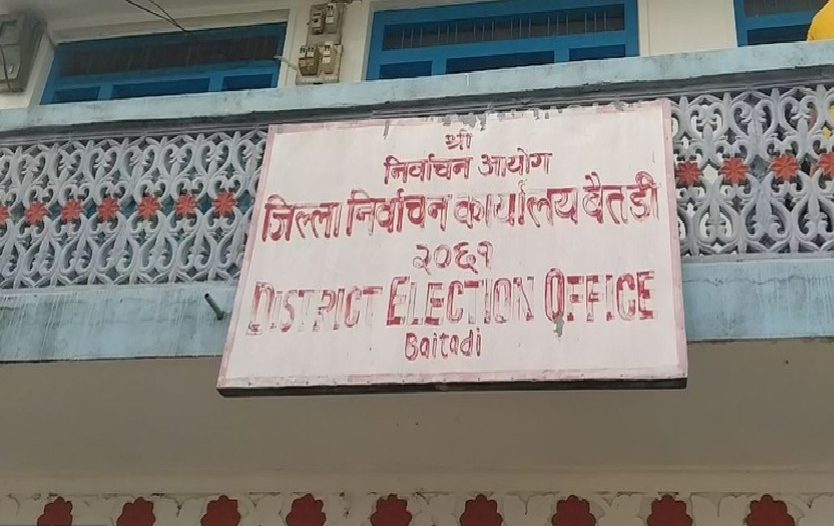 श्री
निर्वाचन आयोग
जिल्ला निर्वाचन कार्यालय बैतडी
२०६१
DISTRICT ELECTION OFFICE
Baitadi